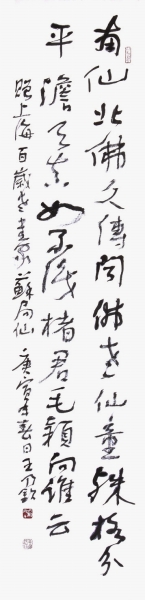 南仙北佛久傳聞佛老仙童殊格分
平澹天真如不浅楮君毛颖向誰云
贈上海百歲老書家蘇局仙 庚寅年春日王乃欽